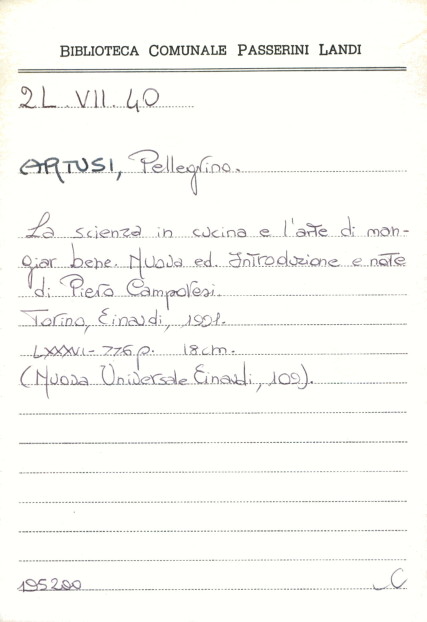 BIBLIOTECA COMUNALE PASSERINI LANDI
2L.VII.40
ARTUSI, Pellegrino.
La scienza in cucina e l'arte di man-
giar bene. Nuova ed. Introduzione e note
di Piero Camporesi.
Torino, Einaudi, 1991.
LXXXVI-776 p. 18 cm.
(Nuova Universale Einaudi, 109).
195200
C